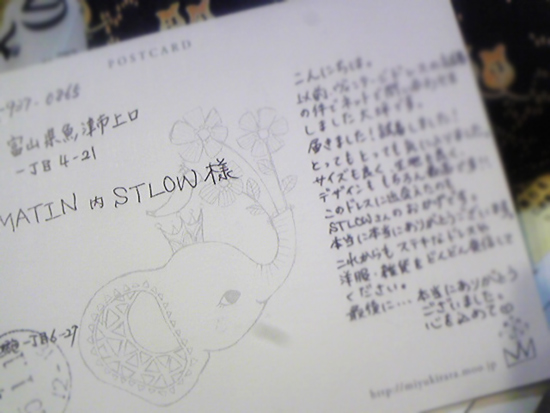 POSTCARD
-937-0865
富山県魚津市上口
一丁目4-21
MATIN 内 STLOW 様
一丁目6-27
こんにちは。
以前ヴィンテージドレスの
の件でネットで問い合わせを
しました
届きました!試着しました!
とってもとっても気に入りました。
サイズも良く、生地も良く、
デザインももちろん最高です!!
このドレスに出会えたのも
STLOWさんのおかげです。
本当に本当にありがとうございます。
これからも ステキなドレスや
洋服・雑貨をどんどん発信して
ください。
最後に…本当にありがとう
ございました。
心を込めて
http://miyukitata.moo.jp